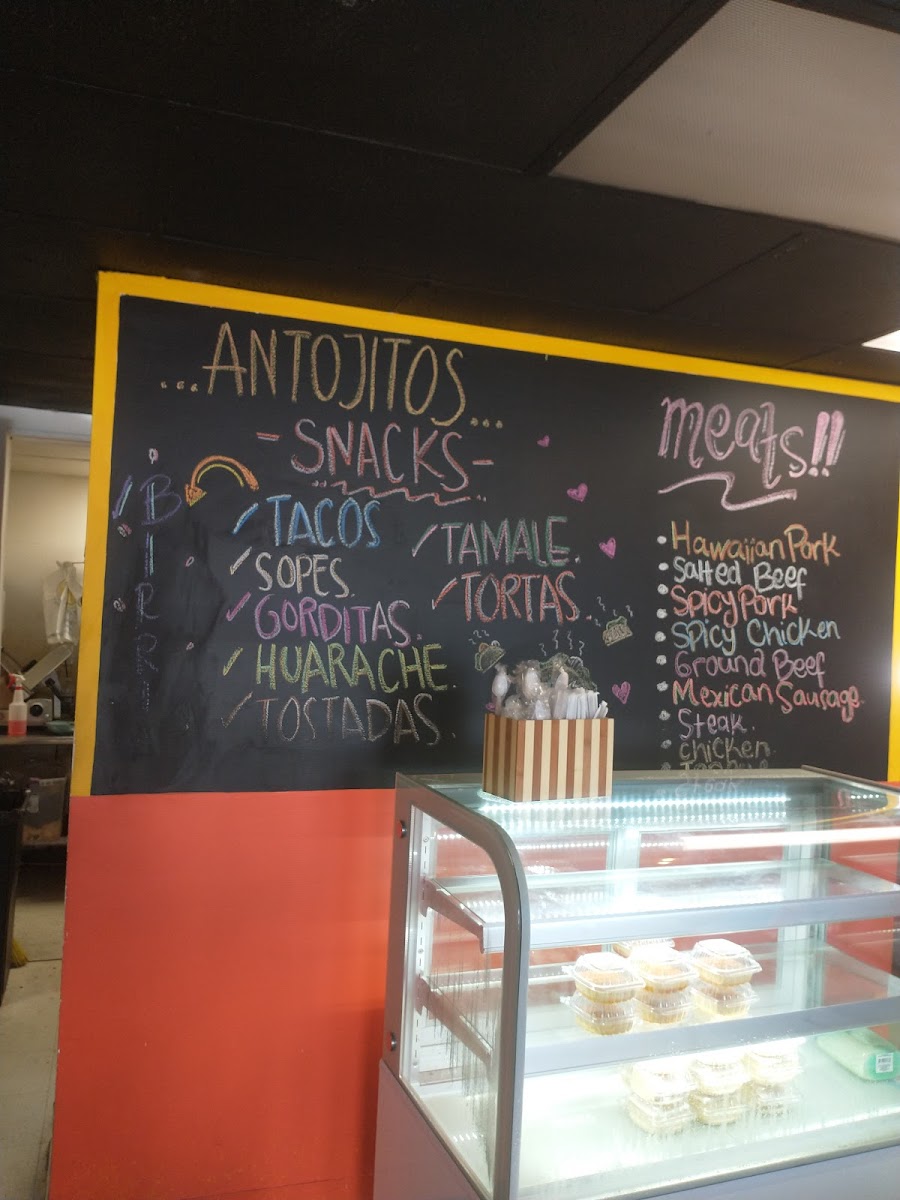 ...ANTOJITOS...
-SNACKS-
BIRRIA
TACOS
SOPES.
GORDITAS.
HUARACHE.
TOSTADAS.
TAMALE.
TORTAS.
meats!!
Hawaiian Pork
Salted Beef
Spicy Pork
Spicy Chicken
Ground Beef
Mexican Sausage.
Steak.
Chicken.